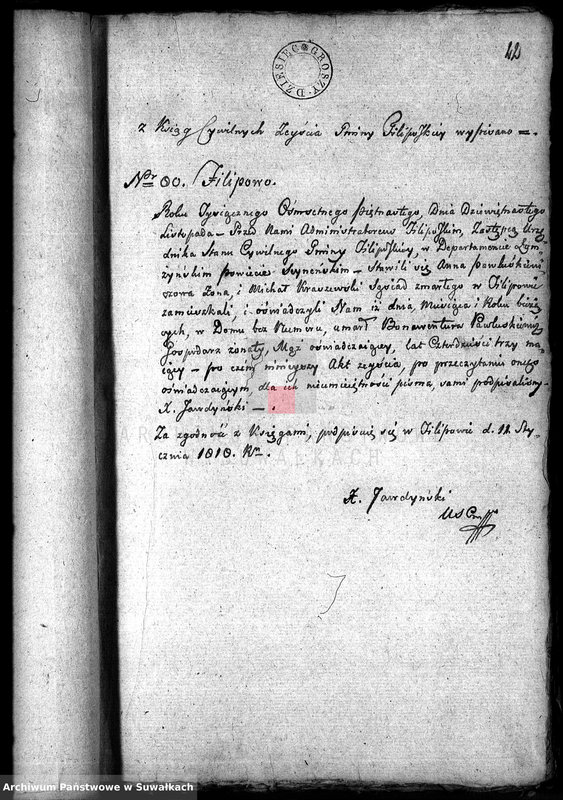 42
DZIESIĘC GROSZY
z Xiąg Cywilnych Zeyścia Gminy Filipowskiey wypisano =.
Nr 80. Filipowo.
Roku Tysiącznego Ośmsetnego Piętnastego, Dnia Dziewiętnastego
Listopada – Przed Nami Administratorem Filipowskim, Zastępcą Urzę-
dnika Stanu Cywilnego Gminy Filipowskiey, w Departamencie Łom-
żyńskim Powiecie Seynenskim – Stawili się Anna Pawluskiewi-
czowa Zona, i Michał Kraszewski Sąsiad zmarłego w Filipowie
zamieszkali, i oświadczyli Nam iż dnia, Miesiąca i Roku bieżą-
cych, w Domu bez Numeru, umarł Bonawentura Pawluskiewicz
Gospodarz żonaty, Mąż oświadczaiącey, lat Czterdzieści trzy ma-
iący – po czem ninieyszy Akt zeyścia, po przeczytaniu onego
oświadczaiącym, dla ich nieumieiętności pisma, sami podpisaliśmy.
X. Jawdyński –
Za zgodność z Xięgami, podpisuię się w Filipowie d. 11. Sty-
cznia 1818. Rn.
X. Jawdyński
USC
Archiwum Państwowe w Suwałkach